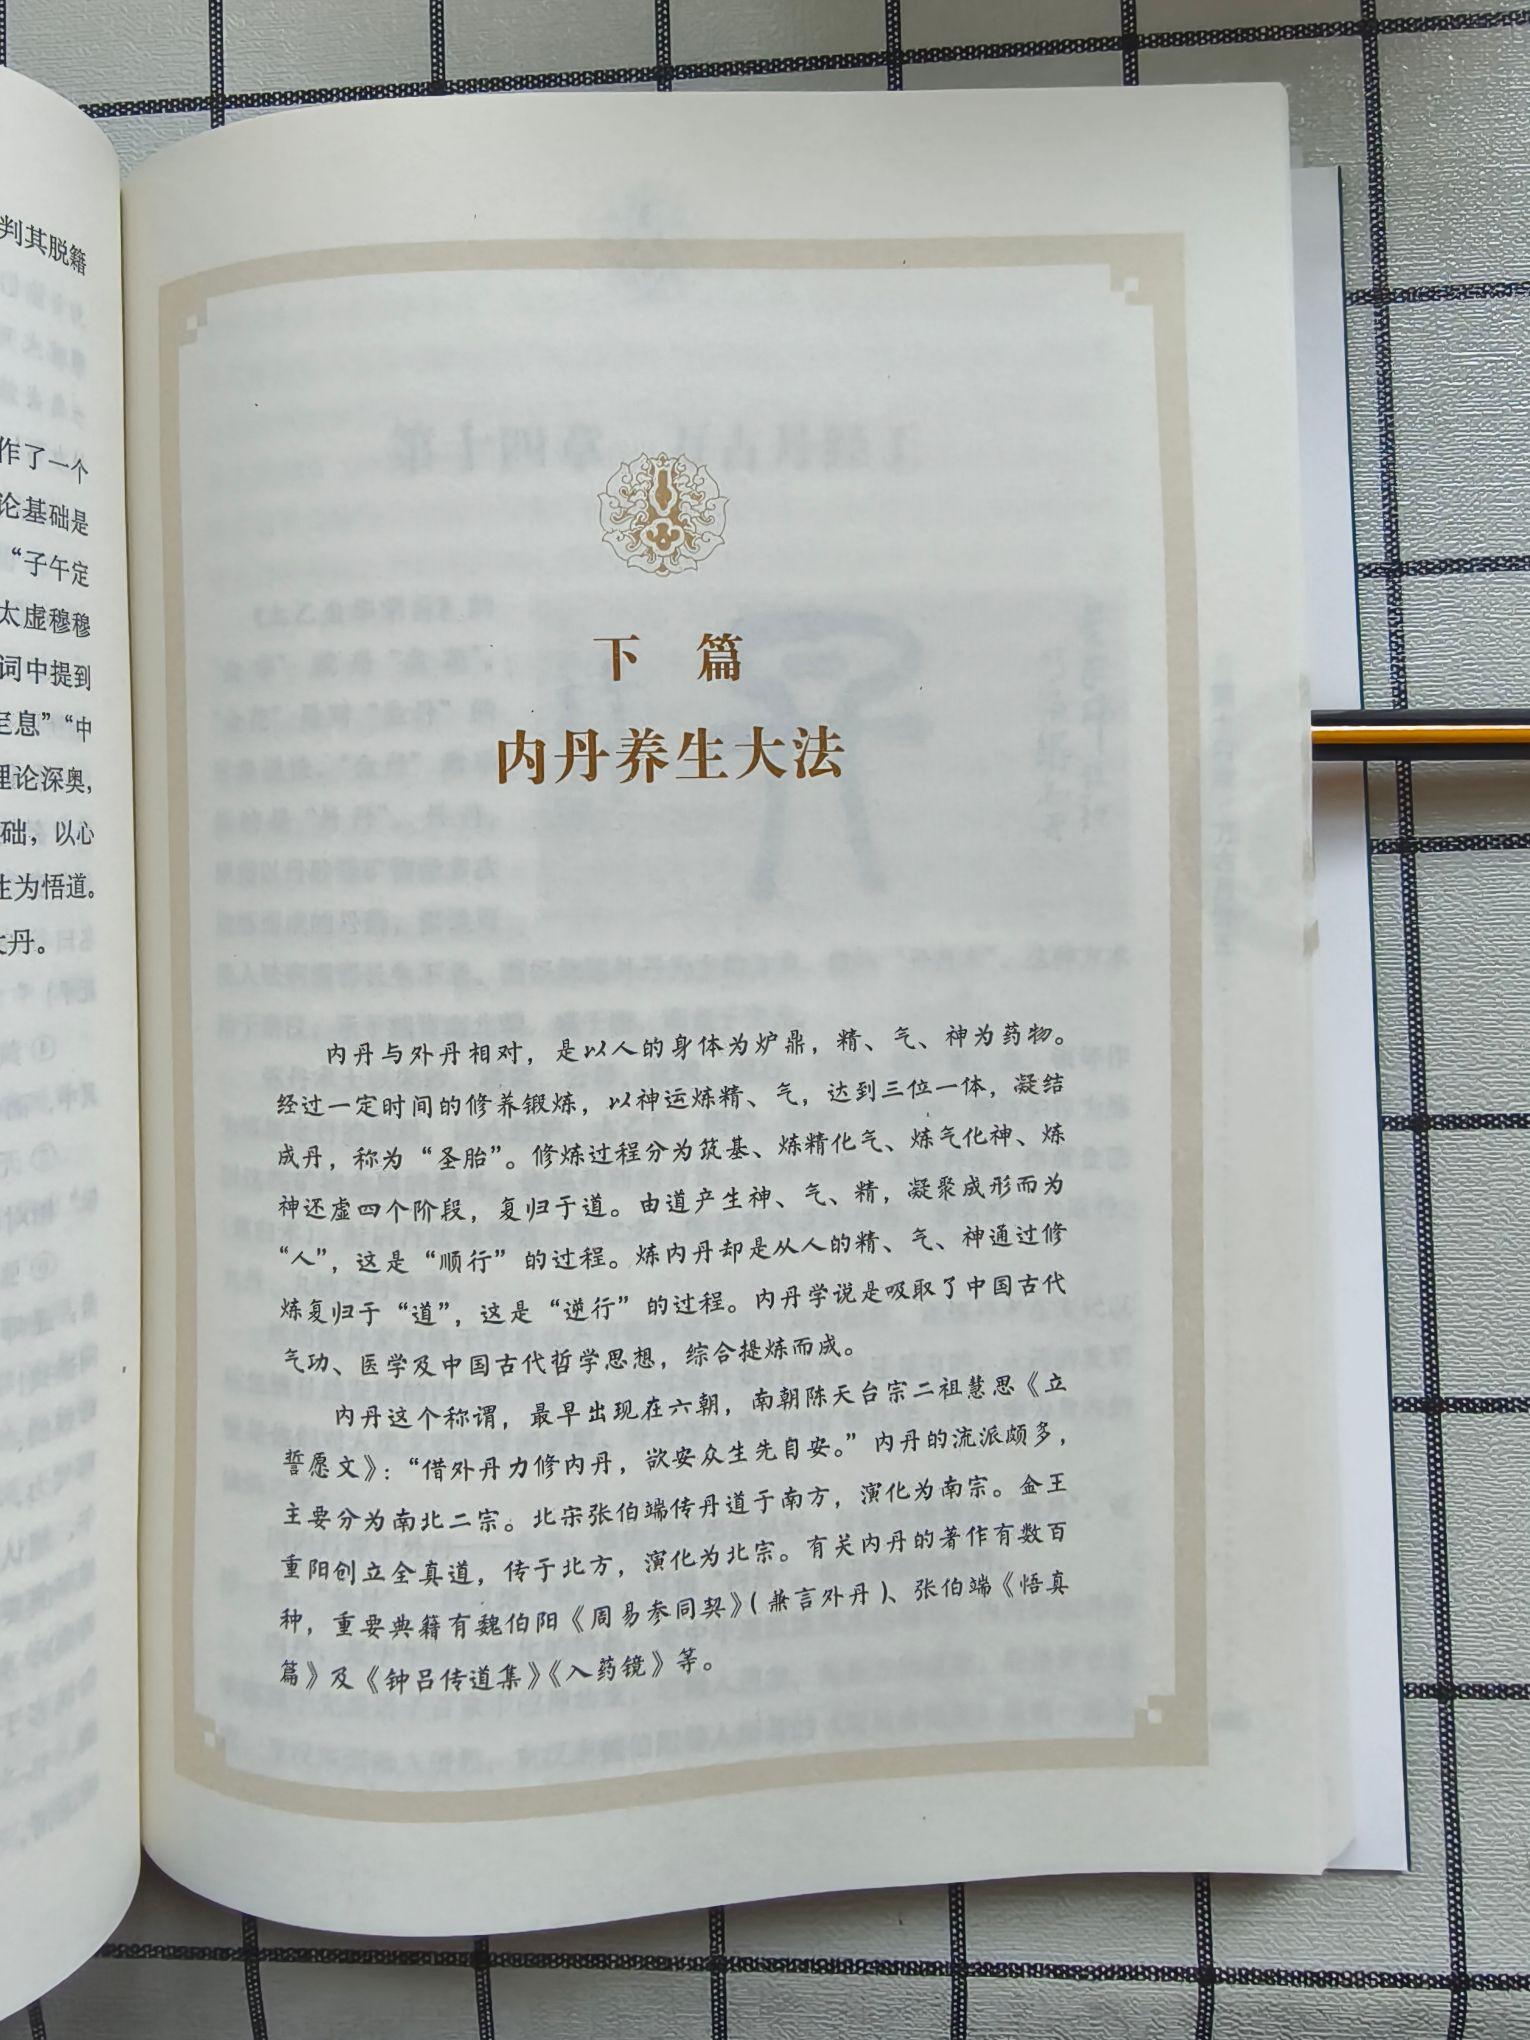 判其脱籍
作了一个
论基础是
“子午定
太虚穆穆
词中提到
定息”“中
理论深奥，
础，以心
生为悟道。
大丹。
下 篇
内丹养生大法
内丹与外丹相对，是以人的身体为炉鼎，精、气、神为药物。
经过一定时间的修养锻炼，以神运炼精、气，达到三位一体，凝结
成丹，称为“圣胎”。修炼过程分为筑基、炼精化气、炼气化神、炼
神还虚四个阶段，复归于道。由道产生神、气、精，凝聚成形而为
“人”，这是“顺行”的过程。炼内丹却是从人的精、气、神通过修
炼复归于“道”，这是“逆行”的过程。内丹学说是吸取了中国古代
气功、医学及中国古代哲学思想，综合提炼而成。
内丹这个称谓，最早出现在六朝，南朝陈天台宗二祖慧思《立
誓愿文》：“借外丹力修内丹，欲安众生先自安。”内丹的流派颇多，
主要分为南北二宗。北宋张伯端传丹道于南方，演化为南宗。金王
重阳创立全真道，传于北方，演化为北宗。有关内丹的著作有数百
种，重要典籍有魏伯阳《周易参同契》（兼言外丹）、张伯端《悟真
篇》及《钟吕传道集》《入药镜》等。